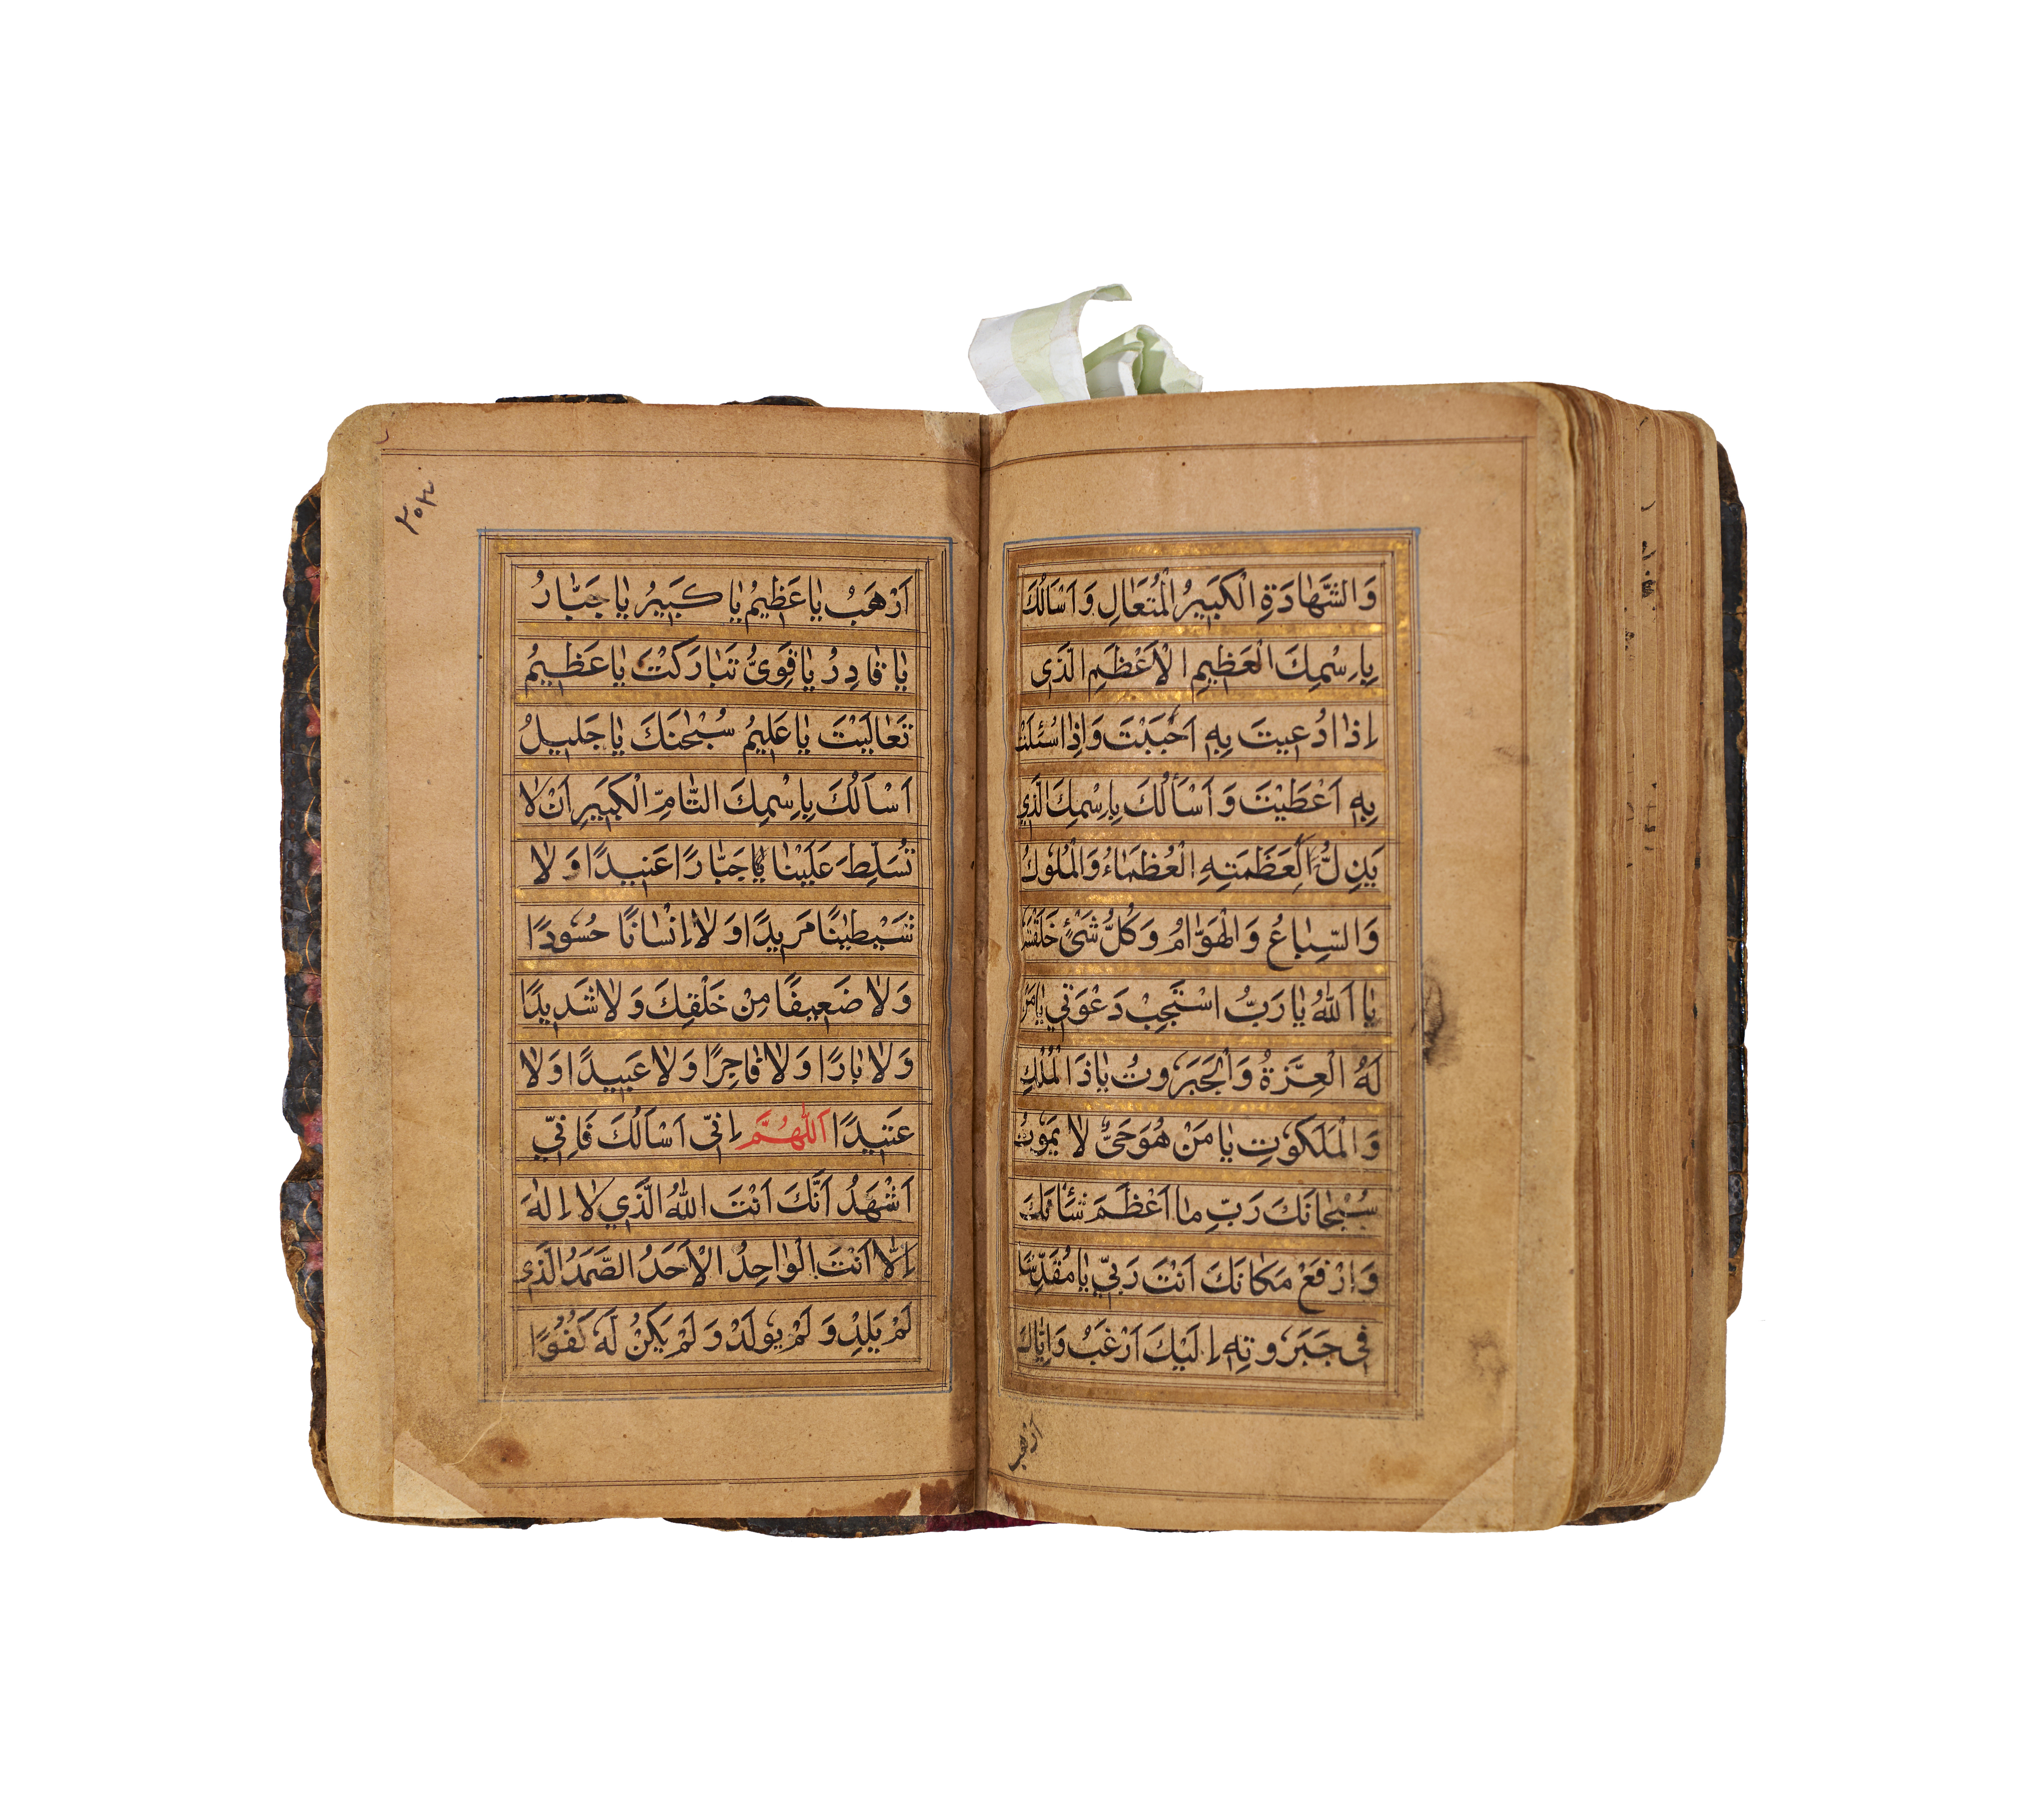 وَالشَّهَادَةِ الْكَبِيرُ الْمُتَعَالِ وَاَسْاَلُكَ
بِاِسْمِكَ الْعَظِيمِ الْاَعْظَمِ الَّذَى
اِذَا دُعِيتَ بِهِ اَحْبَبْتَ وَاِذَا سُئِلْتَ
بِهِ اَعْطَيْتَ وَ اَسْأَلُكَ بِاِسْمِكَ الَّذِي
يَذِلُّ لِعَظَمَتِهِ الْعُظَمَاءُ وَالْمُلُوكُ
وَالسِّبَاعُ وَالْهَوَامُّ وَكُلُّ شَئٍْ خَلَقْتَهُ
يَا اَللّٰهُ يَا رَبُّ اسْتَجِبْ دَعْوَتِي يَا مَنْ
لَهُ الْعِزَّةُ وَالْجَبَرُوتُ يَا ذَا الْمُلْكِ
وَالْمَلَكُوتِ يَا مَنْ هُوَ حَىٌّ لَا يَمُوتُ
سُبْحَانَكَ رَبِّ مَا اَعْظَمَ شَأْنَكَ
وَاَرْفَعَ مَكَانَكَ اَنْتَ رَبِّي يَا مُقَدِّسًا
فِى جَبَرُوتِهِ اِلَيْكَ اَرْغَبُ وَاِيَّاكَ
اَرْهَبُ
٢٥٢
اَرْهَبُ يَا عَظِيمُ يَا كَبِيرُ يَا جَبَّارُ
يَا قَادِرُ يَا قَوِىُّ تَبَارَكْتَ يَا عَظِيمُ
تَعَالَيْتَ يَا عَلِيمُ سُبْحٰنَكَ يَا جَلِيلُ
اَسْاَلُكَ بِاِسْمِكَ التَّامِّ الْكَبِيرِ اَنْ لَا
تُسَلِّطَ عَلَيْنَا جَبَّارًا عَنِيدًا وَلَا
شَيْطٰنًا مَرِيدًا وَلَا اِنْسَانًا حَسُودًا
وَلَا ضَعِيفًا مِنْ خَلْقِكَ وَلَا شَدِيدًا
وَلَا بَارًا وَلَا فَاجِرًا وَلَا عَبِيدًا وَلَا
عَنِيدًا اَللّٰهُمَّ اِنّى اَسْاَلُكَ فَاِنِّي
اَشْهَدُ اَنَّكَ اَنْتَ اللّٰهُ الَّذِي لَا اِلٰهَ
اِلَّا اَنْتَ الْوَاحِدُ الْاَحَدُ الصَّمَدُ الَّذِى
لَمْ يَلِدْ وَلَمْ يُولَدْ وَلَمْ يَكُنْ لَهُ كُفُوًا